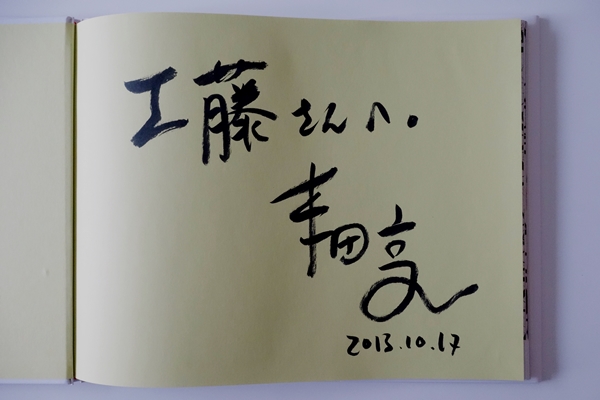 工藤さんへ。
田
2013.10.17